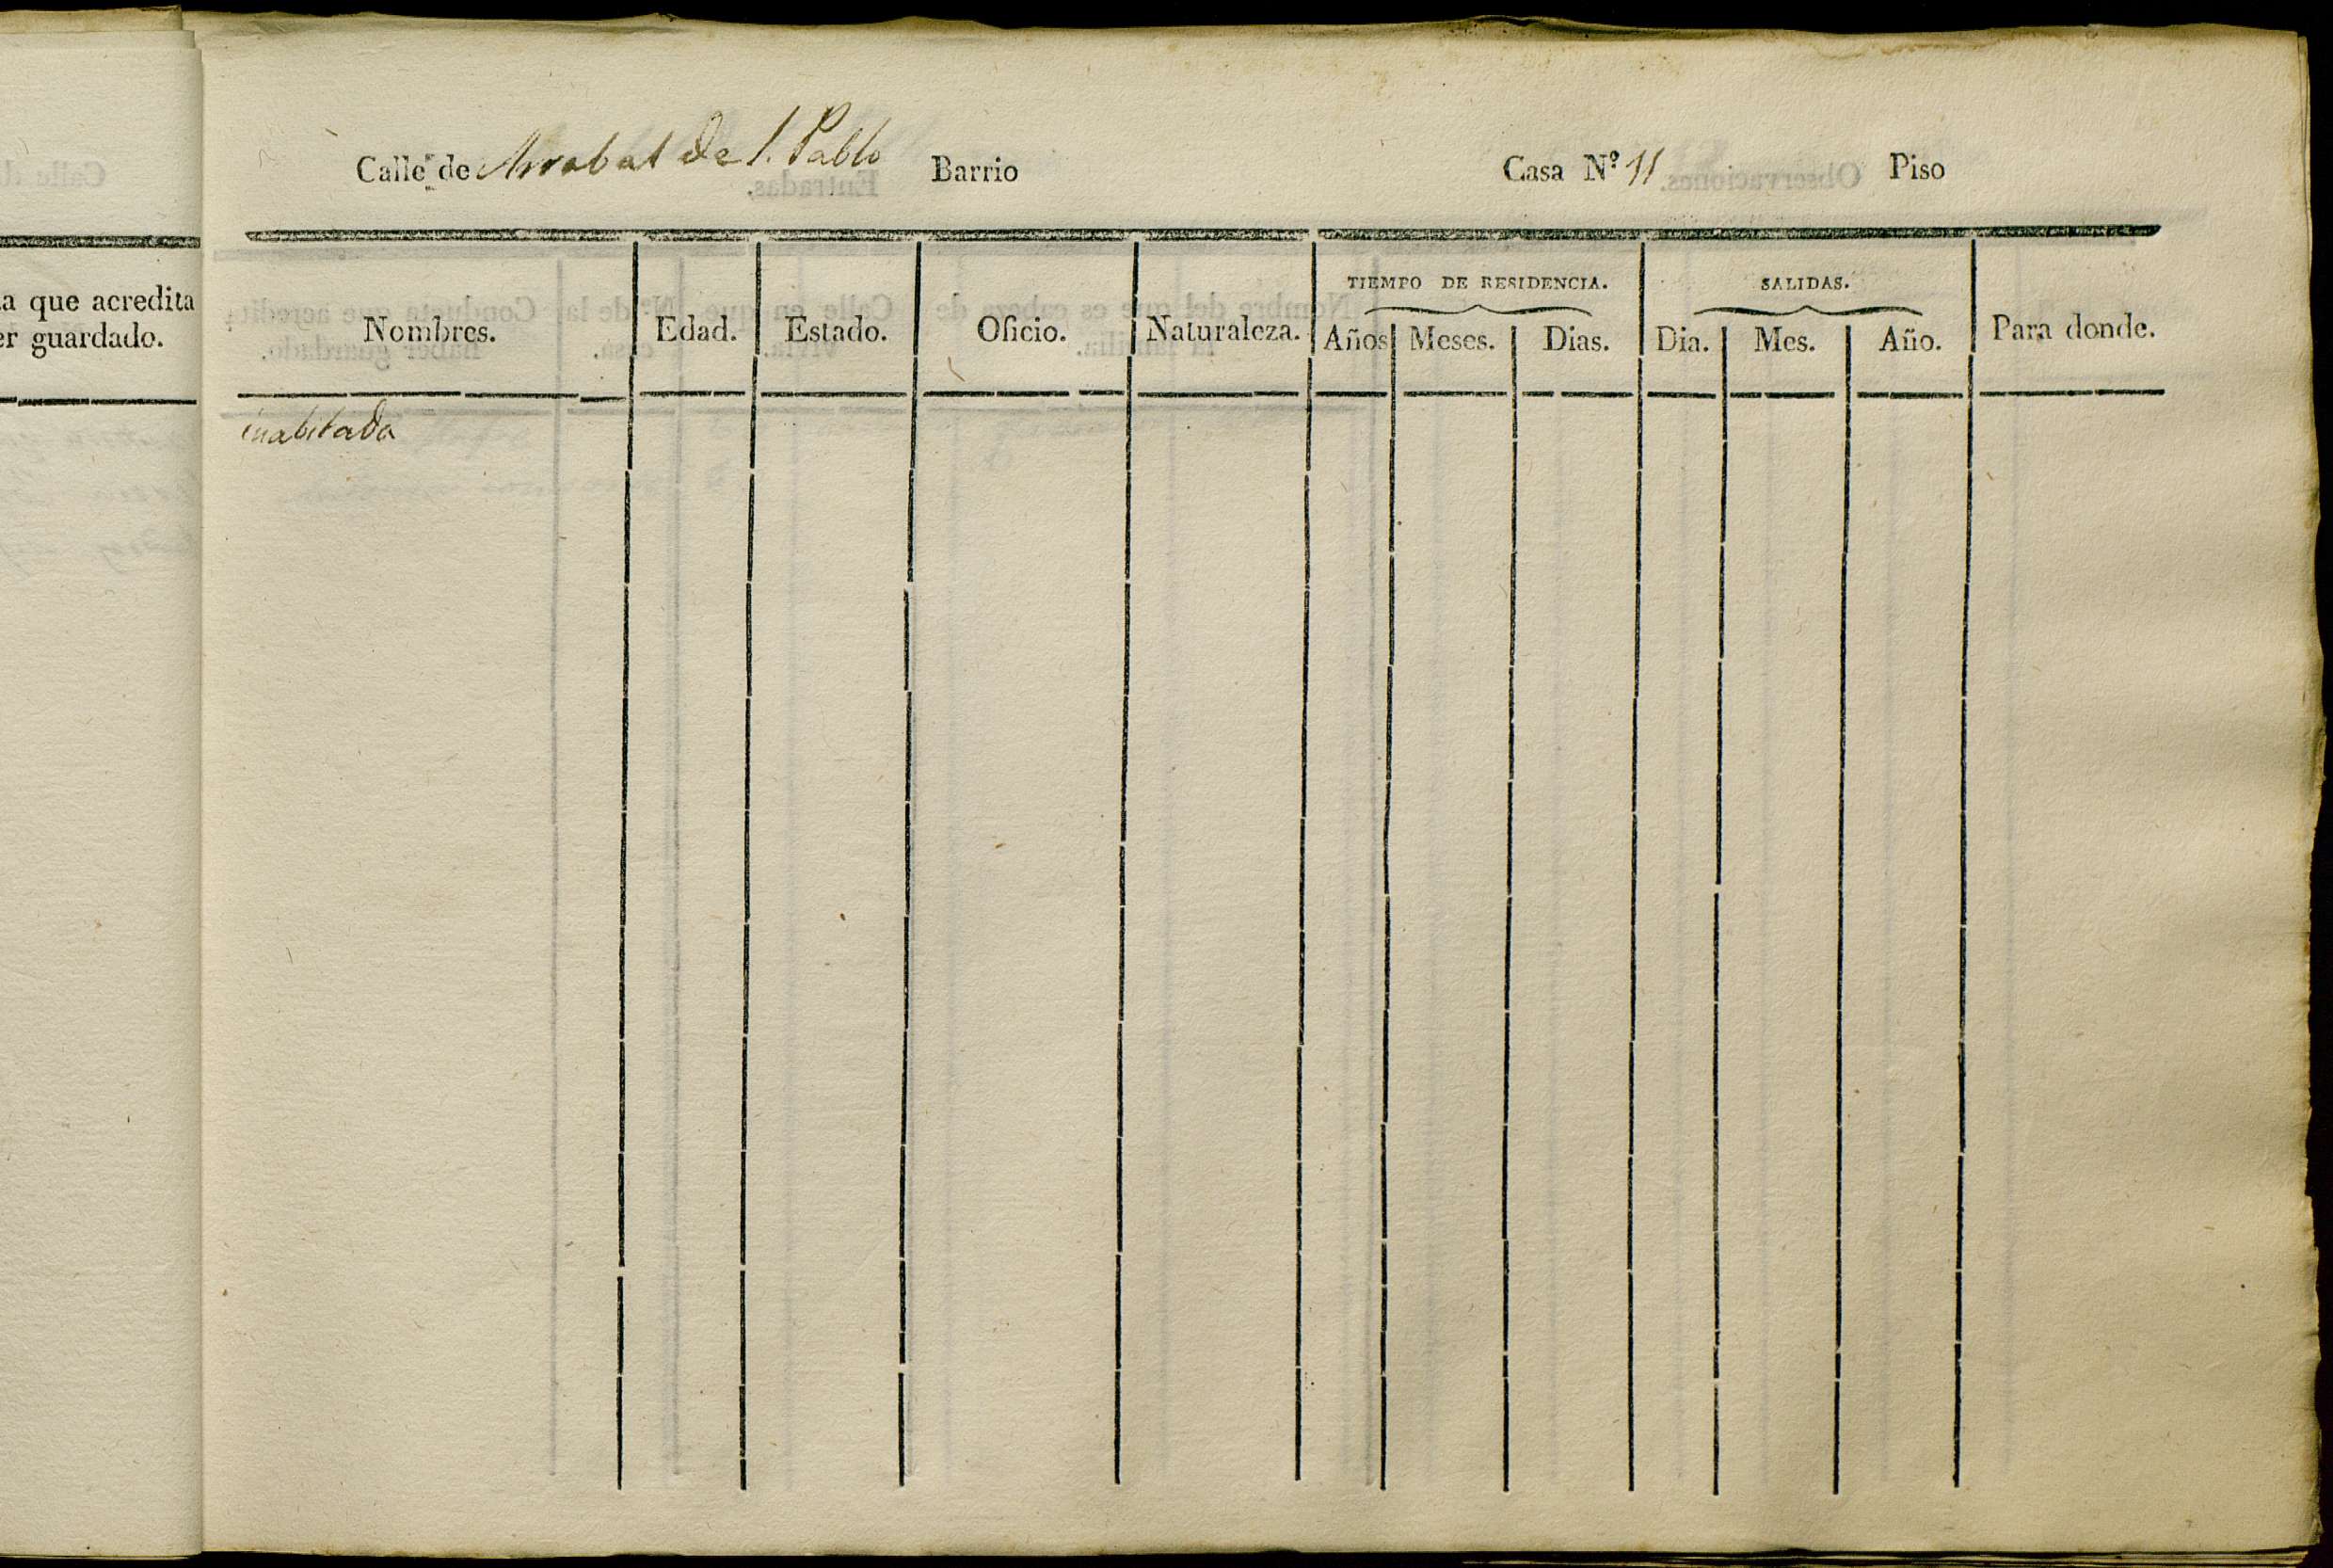 Calle de Arrabal de S. Pablo Barrio Casa N.º 11 Piso
a que acredita
er guardado.
TIEMPO DE RESIDENCIA. SALIDAS.
Nombres. Edad. Estado. Oficio. Naturaleza. Años Meses. Dias. Dia. Mes. Año. Para donde.
inabitada